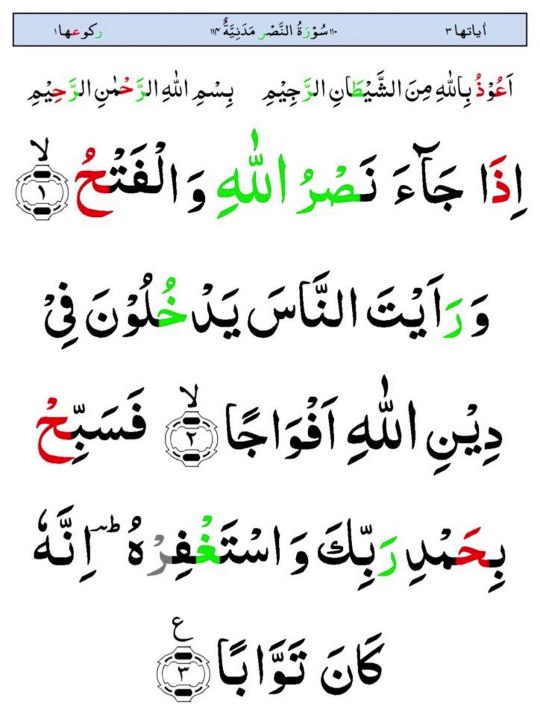 اٰیاتها ۳ ۱۱۰ سُوْرَةُ النَّصْرِ مَدَنِیَّةٌ ۱۱۴ رکوعها ۱
اَعُوْذُ بِاللّٰهِ مِنَ الشَّیْطَانِ الرَّجِیْمِ بِسْمِ اللّٰهِ الرَّحْمٰنِ الرَّحِیْمِ
اِذَا جَآءَ نَصْرُ اللّٰهِ وَ الْفَتْحُ ۙ﴿۱﴾
وَ رَاَیْتَ النَّاسَ یَدْخُلُوْنَ فِیْ
دِیْنِ اللّٰهِ اَفْوَاجًا ۙ﴿۲﴾ فَسَبِّحْ
بِحَمْدِ رَبِّكَ وَ اسْتَغْفِرْهُ ؕ اِنَّهٗ
كَانَ تَوَّابًا ﴿۳﴾ ع